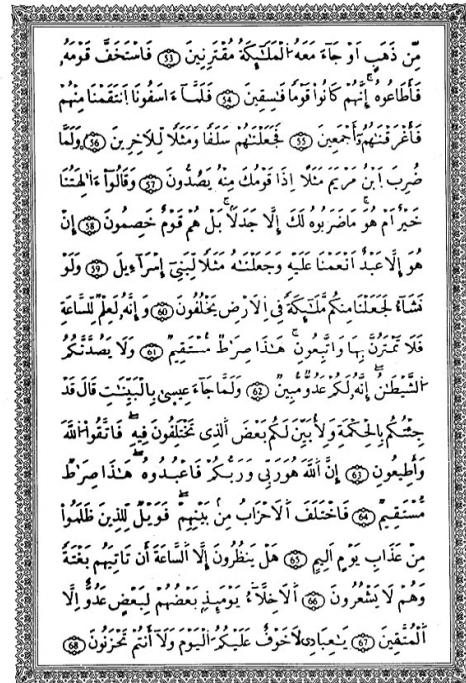 مِّن ذَهَبٍ اَوْ جَآءَ مَعَهُ الْمَلَٰٓئِكَةُ مُقْتَرِنِينَ 53 فَاسْتَخَفَّ قَوْمَهُۥ
فَأَطَاعُوهُ إِنَّهُمْ كَانُوا قَوْمًا فَٰسِقِينَ 54 فَلَمَّآ ءَاسَفُونَا اَنتَقَمْنَا مِنْهُمْ
فَأَغْرَقْنَٰهُمُۥٓ أَجْمَعِينَ 55 فَجَعَلْنَٰهُمْ سَلَفًا وَمَثَلًا لِّلَاخِرِينَ 56 وَلَمَّا
ضُرِبَ اَبْنُ مَرْيَمَ مَثَلًا اِذَا قَوْمُكَ مِنْهُ يَصُدُّونَ 57 وَقَالُوٓا ءَاٰلِهَتُنَا
خَيْرٌ اَمْ هُوَ مَا ضَرَبُوهُ لَكَ إِلَّا جَدَلًا بَلْ هُمْ قَوْمٌ خَصِمُونَ 58 إِنْ
هُوَ إِلَّا عَبْدٌ اَنْعَمْنَا عَلَيْهِ وَجَعَلْنَٰهُ مَثَلًا لِّبَنِىٓ إِسْرَآءِيلَ 59 وَلَوْ
نَشَآءُ لَجَعَلْنَا مِنكُم مَّلَٰٓئِكَةً فِى الَارْضِ يَخْلُفُونَ 60 وَإِنَّهُ لَعِلْمٌ لِّلسَّاعَةِ
فَلَا تَمْتَرُنَّ بِهَا وَاتَّبِعُونِ هَٰذَا صِرَٰطٌ مُّسْتَقِيمٌ 61 وَلَا يَصُدَّنَّكُمُ
الشَّيْطَٰنُ إِنَّهُ لَكُمْ عَدُوٌّ مُّبِينٌ 62 وَلَمَّا جَآءَ عِيسَىٰ بِالْبَيِّنَٰتِ قَالَ قَدْ
جِئْتُكُم بِالْحِكْمَةِ وَلِأُبَيِّنَ لَكُم بَعْضَ الَّذِى تَخْتَلِفُونَ فِيهِ فَاتَّقُوا اللَّهَ
وَأَطِيعُونِ 63 إِنَّ اللَّهَ هُوَ رَبِّى وَرَبُّكُمْ فَاعْبُدُوهُ هَٰذَا صِرَٰطٌ
مُّسْتَقِيمٌ 64 فَاخْتَلَفَ الَاحْزَابُ مِنۢ بَيْنِهِمْ فَوَيْلٌ لِّلَّذِينَ ظَلَمُوا
مِنْ عَذَابِ يَوْمٍ اَلِيمٍ 65 هَلْ يَنظُرُونَ إِلَّا السَّاعَةَ أَن تَاتِيَهُم بَغْتَةً
وَهُمْ لَا يَشْعُرُونَ 66 الَاخِلَّآءُ يَوْمَئِذٍۭ بَعْضُهُمْ لِبَعْضٍ عَدُوٌّ اِلَّا
الْمُتَّقِينَ 67 يَٰعِبَادِى لَا خَوْفٌ عَلَيْكُمُ الْيَوْمَ وَلَآ أَنتُمْ تَحْزَنُونَ 68